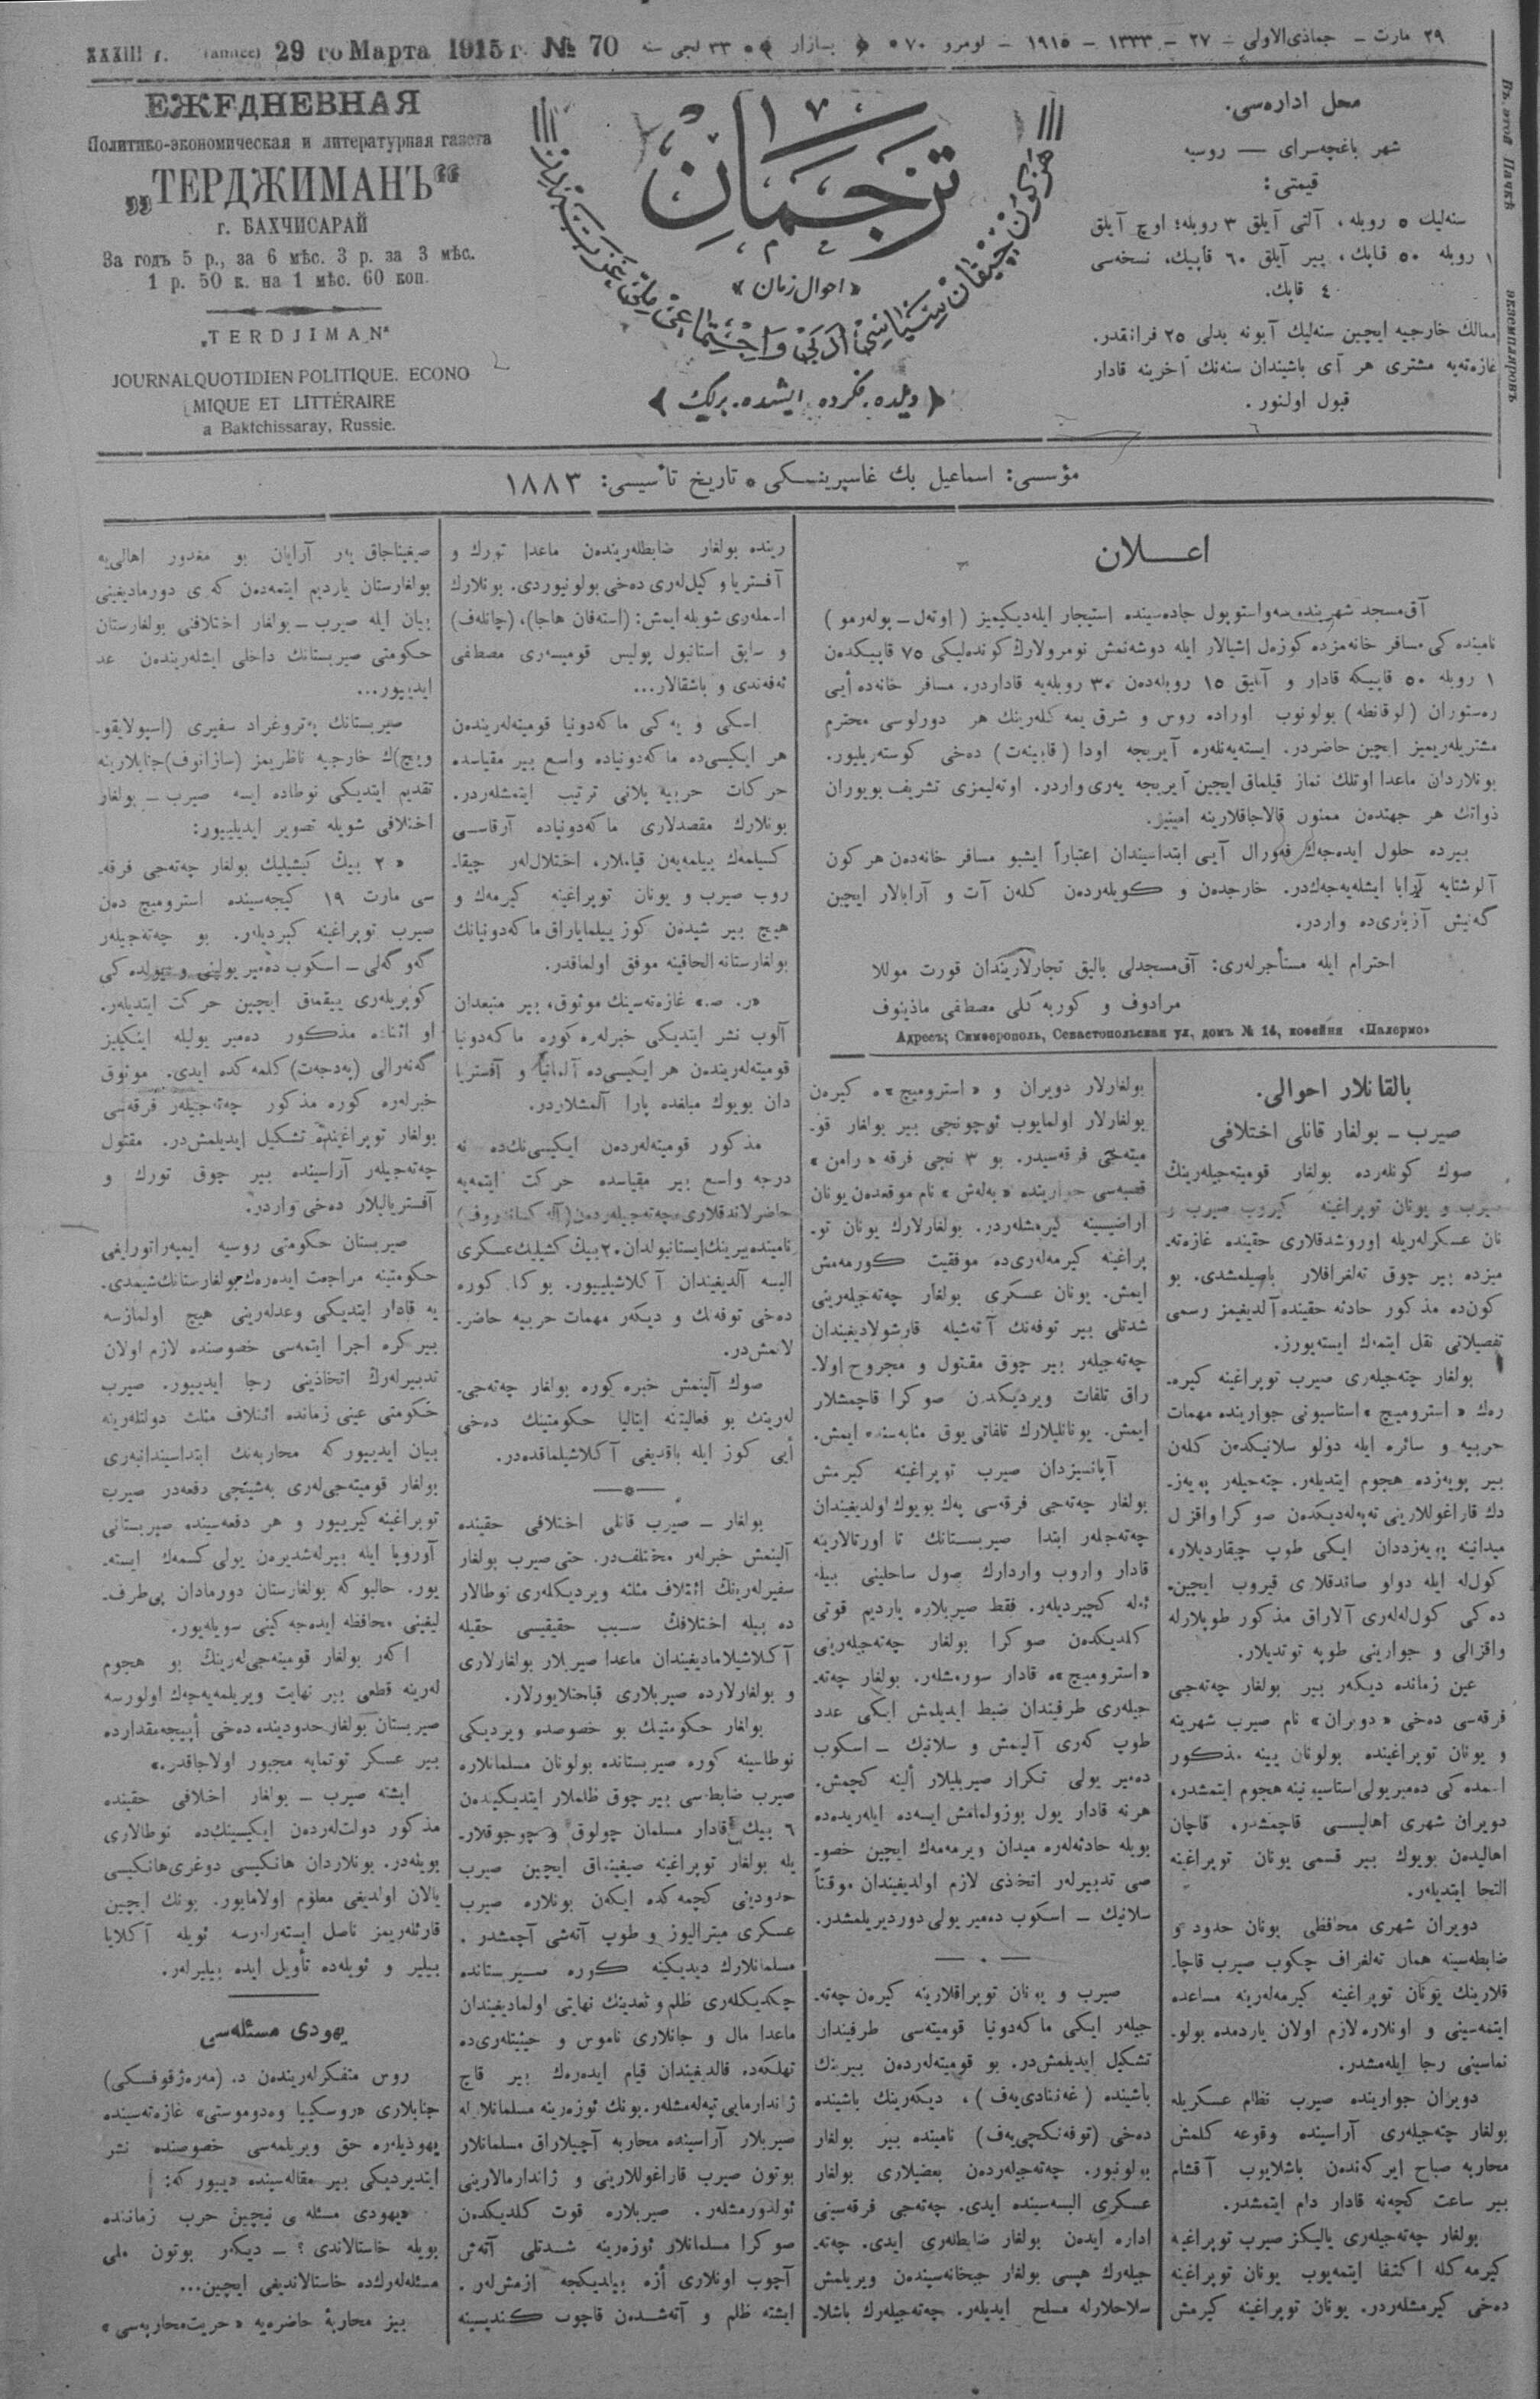 ٢٩ مارت – جماذى‌الاولى – ٢٧ – ١٣٣٣ – ١٩١٥ – نومرو ٧٠ بازار ٣٣ نجى سنه
29 го Марта 1915 г. № 70
XXXIII г.
ЕЖЕДНЕВНАЯ
Политико-экономическая и литературная газета
„ТЕРДЖИМАНЪ“
г. БАХЧИСАРАЙ
За годъ 5 р., за 6 мѣс. 3 р. за 3 мѣс.
1 р. 50 к. на 1 мѣс. 60 коп.
„TERDJIMAN“
JOURNAL QUOTIDIEN POLITIQUE. ECONO
MIQUE ET LITTÉRAIRE
a Baktchissaray, Russie.
ترجمان
«احوال زمان»
دیلده، فکرده، ایشده، برلك
محل اداره‌سی.
شهر باغچه‌سرای — روسیه
قیمتی:
سنه‌لیك ٥ روبله، آلتی آیلق ٣ روبله؛ اوچ آیلق
١ روبله ٥٠ قاپك، بیر آیلق ٦٠ قاپیك، نسخه‌سی
٤ قاپك.
ممالك خارجیه ایچین سنه‌لیك آبونه بدلی ٢٥ فرانقدر.
غازه‌ته‌یه مشتری هر آی باشیندان سنه‌نك آخرینه قادار
قبول اولنور.
مؤسسی: اسماعیل بك غاسپرینسکی * تاریخ تأسیسی: ١٨٨٣
اعلان
آق‌مسجد شهرینده سه‌واستوپول جاده‌سینده استیجار ایله‌دیکیمیز (اوته‌ل – پوله‌رمو)
نامینده‌کی مسافر خانه‌مزده کوزه‌ل اشیالار ایله دوشه‌نمش نومرولارڭ کونده‌لیکی ٧٥ قاپیکدەن
١ روبله ٥٠ قاپیکه قادار و آیلیق ١٥ روبله‌دەن ٣٠ روبله‌یه قاداردر. مسافر خانه‌ده أیی
رەستوران (لوقانطه) بولونوب اوراده روس و شرق یمه‌کله‌رینك هر دورلوسی محترم
مشتریله‌ریمیز ایچین حاضردر. ایسته‌یه‌نله‌ره آیریجه اودا (قابینه‌ت) دەخی کوسته‌ریلیور.
بونلاردان ماعدا اوتلك نماز قیلماق ایچین آیریجه یه‌ری واردر. اوته‌لیمزی تشریف بویوران
ذواتك هر جهتدەن ممنون قالاجاقلارینه امینیز.
بیرده حلول ایده‌جه‌ك فه‌ورال آیی ابتداسیندان اعتباراً ایشبو مسافر خانه‌دەن هر کون
آلوشتایه آرابا ایشله‌یه‌جه‌كدر. خارجدەن و کویله‌ردەن کلەن آت و آرابالار ایچین
گه‌نیش آزباری‌ده واردر.
احترام ایله مستأجرلەری: آق‌مسجدلی بالیق تجارلاریندان قورت موللا
مرادوف و کوربه‌کلی مصطفی ماذینوف
Адресъ; Симферополь, Севастопольская ул, домъ № 14, кофейня «Палермо»
بالقانلار احوالی.
صیرب – بولغار قانلی اختلافی
صوك کونلەرده بولغار قومیته‌جیلەرینك
صیرب و یونان توپراغینه کیروب صیرب و یو
نان عسکرلەریله اوروشدقلاری حقینده غازه‌ته‌
میزده بیر چوق ته‌لغرافلار باصیلمشدی. بو
کون‌ده مذکور حادثه حقینده آلدیغیمز رسمی
تفصیلاتی نقل ایتمك ایسته‌یورز.
بولغار چته‌جیلەری صیرب توپراغینه کیره‌
رەك «استرومیچ» استاسیونی جوارینده مهمات
حربیه و سائره ایله دولو سلانیکدەن کلەن
بیر پویه‌زده هجوم ایتدیلەر. چته‌جیلەر پویه‌ز
دك قاراغوللارینی ته‌په‌له‌دیکدەن صوکرا واقزال
میدانینه پویه‌زدان ایکی طوپ چیقاردیلار،
کول‌له ایله دولو صاندقلاری قیروب ایچین
ده‌کی کول‌له‌لەری آلاراق مذکور طوپلارله
واقزالی و جوارینی طوپه توتدیلار.
عین زمانده دیکەر بیر بولغار چه‌ته‌جی
فرقه‌سی دەخی «دویران» نام صیرب شهرینه
و یونان توپراغینده بولونان یینه مذکور
اسمده‌کی دەمیر یولی استاسیونینه هجوم ایتمشدر،
دویران شهری اهالیسی قاچمشدر. قاچان
اهالیدەن بویوك بیر قسمی یونان توپراغینه
التجا ایتدیلەر.
دویران شهری محافظی یونان حدود
ضابطه‌سینه همان ته‌لغراف چکوب صیرب قاچا
قلارینك یونان توپراغینه کیرمه‌لەرینه مساعده
ایتمه‌سینی و اونلاره لازم اولان یاردمده بولو
نماسینی رجا ایله‌مشدر.
دویران جوارینده صیرب نظام عسکریله
بولغار چته‌جیلەری آراسینده وقوعه کلمش
محاربه صباح ایرکه‌ندەن باشلایوب آقشام
بیر ساعت کچه‌نه قادار دام ایتمشدر.
بولغار چه‌ته‌جیلەری یالیکز صیرب توپراغینه
کیرمه‌کله اکتفا ایتمه‌یوب یونان توپراغینه
دەخی کیرمشلەردر. یونان توپراغینه کیرمش
بولغارلار دویران و «استرومیچ»ه کیرەن
بولغارلار اولمایوب ئوچونجی بیر بولغار قو
میته‌جی فرقه‌سیدر. بو ٣ نجی فرقه «رامن»
قصبه‌سی جوارینده «به‌له‌ش» نام موقعدەن یونان
اراضیسینه کیرمشلەردر. بولغارلارك یونان تو
پراغینه کیرمه‌لەری‌ده موفقیت کورمه‌مش
ایمش. یونان عسکری بولغار چه‌ته‌جیلەرینی
شدتلی بیر توفه‌نك آته‌شیله قارشولادیغیندان
چه‌ته‌جیلەر بیر چوق مقتول و مجروح اولا
راق تلفات ویردیکدەن صوکرا قاچمشلار
ایمش. یونانلیلارك تلفاتی یوق مثابه‌سنده ایمش.
آپانسیزدان صیرب توپراغینه کیرمش
بولغار چه‌ته‌جی فرقه‌سی پەك بویوك اولدیغیندان
چه‌ته‌جیلەر ابتدا صیربستانك تا اورتالارینه
قادار واروب واردارك صول ساحلینی بیله
ئەله کچیردیلەر. فقط صیربلاره یاردیم قوتی
کلدیکدەن صوکرا بولغار چه‌ته‌جیلەرینی
«استرومیچ»ه قادار سورمشلەر. بولغار چه‌ته‌
جیلەری طرفیندان ضبط ایدیلمش ایکی عدد
طوپ کەری آلیمش و سلانیك – اسکوب
دەمیر یولی تکرار صیربلیلار ألینه کچمش.
هرنه قادار یول بوزولمامش ایسه‌ده ایلەریده‌ده
بویله حادثه‌لەره میدان ویرمه‌مەك ایچین خصو
صی تدبیرلەر اتخاذی لازم اولدیغیندان موقتاً
سلانیك – اسکوب دەمیر یولی دوردیریلمشدر.
صیرب و یونان توپراقلارینه کیرەن چه‌ته‌
جیلەر ایکی ماکه‌دونیا قومیته‌سی طرفیندان
تشکیل ایدیلمش‌در. بو قومیته‌لەردەن بیرینك
باشینده (غه‌ننادی‌یه‌ف)، دیکەرینك باشینده
دەخی (توفه‌نکچی‌یه‌ف) نامینده بیر بولغار
بولونیور. چه‌ته‌جیلەردەن بعضیلاری بولغار
عسکری البسه‌سینده ایدی. چه‌ته‌جی فرقه‌سینی
اداره ایدەن بولغار ضابطلەری ایدی. چه‌ته‌
جیلەرك هپسی بولغار جبخانه‌سیندەن ویریلمش
سلاحلارله مسلح ایدیلەر. چه‌ته‌جیلەرك باشلا
رینده بولغار ضابطلەریندەن ماعدا تورك و
آفستریا وکیل‌لەری دەخی بولونیوردی. بونلارك
اسملەری شویله ایمش: (استه‌فان هاجا)، (چانله‌ف)
و سابق استانبول پولیس قومیسەری مصطفی
ئه‌فه‌ندی و باشقالار...
اسکی و یه‌کی ماکه‌دونیا قومیته‌لەریندەن
هر ایکیسی‌ده ماکه‌دونیاده واسع بیر مقیاسده
حرکات حربیه پلانی ترتیب ایتمشلەردر.
بونلارك مقصدلاری ماکه‌دونیاده آرقاسی
کسیلمەك بیلمه‌یەن قیاملار، اختلال‌لەر چیقا
روب صیرب و یونان توپراغینه کیرمەك و
هیچ بیر شیدەن کوز ییلمایاراق ماکه‌دونیانك
بولغارستانه الحاقینه موفق اولماقدر.
«ر. ص.» غازه‌ته‌سینك موثوق، بیر منبعدان
آلوب نشر ایتدیکی خبرلەره کوره ماکه‌دونیا
قومیته‌لەریندەن هر ایکیسی‌ده آلمانیا و آفستریا
دان بویوك مبلغده پارا آلمشلاردر.
مذکور قومیته‌لەردەن ایکیسی‌نك‌ده نه
درجه واسع بیر مقیاسده حرکت ایتمه‌یه
حاضرلاندقلاری، چه‌ته‌جیلەردەن (آله‌کساندروف)
نامینده بیرینك ایستانبولدان ٢٠ بیڭ کشیلیك عسکری
البسه آلدیغیندان آکلاشیلیور. بوکا کوره
دەخی توفه‌نك و دیکەر مهمات حربیه حاضر
لانمش‌در.
صوك آلینمش خبره کوره بولغار چه‌ته‌جی
لەرینك بو فعالیتنه ایتالیا حکومتینك دەخی
أیی کوز ایله باقدیغی آکلاشیلماقده‌در.
بولغار – صیرب قانلی اختلافی حقینده
آلینمش خبرلەر مختلف‌در. حتی صیرب بولغار
سفیرلەرینك ائتلاف مثلثه ویردیکلەری نوطالار
ده بیله اختلافك سبب حقیقیسی حقیله
آکلاشیلامادیغیندان ماعدا صیربلار بولغارلاری
و بولغارلارده صیربلاری قباحتلایورلار.
بولغار حکومتینك بو خصوصده ویردیکی
نوطاسینه کوره صیربستانده بولونان مسلمانلاره
صیرب ضابطه‌سی بیر چوق ظلملار ایتدیکیندەن
٦ بیڭ قادار مسلمان چولوق و چوجوقلار
یله بولغار توپراغینه صیغینماق ایچین صیرب
حدودینی کچمه‌کده ایکەن بونلاره صیرب
عسکری میترالیوز و طوپ آته‌شی آچمشدر.
مسلمانلارك دیدیکینه کوره صیربستانده
چکدیکلەری ظلم و تعدینك نهایتی اولمادیغیندان
ماعدا مال و جانلاری ناموس و حیثیتلەری‌ده
تهلکه‌ده قالدیغیندان قیام ایده‌رەك بیر قاچ
ژاندارمایی تپه‌له‌مشلەر. بونك ئوزه‌رینه مسلمانلارله
صیربلار آراسینده محاربه آچیلاراق مسلمانلار
بوتون صیرب قاراغوللارینی و ژاندارمالارینی
ئولدورمشلەر. صیربلاره قوت کلدیکدەن
صوکرا مسلمانلار ئوزه‌رینه شدتلی آته‌ش
آچوب اونلاری أزه بیلدیکجه ازمش‌لەر.
ایشته ظلم و آته‌شدەن قاچوب کندیسینه
صیغیناجاق یەر آرایان بو مغدور اهالی‌یه
بولغارستان یاردیم ایتمه‌دەن کەری دورمادیغینی
بیان ایله صیرب – بولغار اختلافنی بولغارستان
حکومتی صیربستانك داخلی ایشلەریندەن عد
ایدییور...
صیربستانك په‌تروغراد سفیری (اسپولایقو
ویچ)ك خارجیه ناظریمز (سازانوف) جنابلارینه
تقدیم ایتدیکی نوطاده ایسه صیرب – بولغار
اختلافی شویله تصویر ایدیلییور:
«٢ بیڭ کیشیلیك بولغار چه‌ته‌جی فرقه‌
سی مارت ١٩ کیجه‌سینده استرومیچ دەن
صیرب توپراغینه کیردیلەر. بو چه‌ته‌جیلەر
گه‌وگه‌لی – اسکوب دەمیر یولینی و یولده‌کی
کوپریلەری ییقماق ایچین حرکت ایتدیلەر.
او اثناده مذکور دەمیر یولیله اینکلیز
گه‌نه‌رالی (په‌دجه‌ت) کلمه‌کده ایدی. موثوق
خبرلەره کوره مذکور چه‌ته‌جیلەر فرقه‌سی
بولغار توپراغینده تشکیل ایدیلمش‌در. مقتول
چه‌ته‌جیلەر آراسینده بیر چوق تورك و
آفستریالیلار دەخی واردر.
صیربستان حکومتی روسیه ایمپه‌راتورلغی
حکومتینه مراجعت ایده‌رەك بولغارستانك شیمدی
یه قادار ایتدیکی وعدلەرینی هیچ اولمازسه
بیر کره اجرا ایتمه‌سی خصوصنده لازم اولان
تدبیرلەرك اتخاذینی رجا ایدییور. صیرب
حکومتی عینی زمانده ائتلاف مثلث دولتلەرینه
بیان ایدییورکه محاربه‌نك ابتداسیندانبەری
بولغار قومیته‌جی‌لەری بەشینجی دفعه‌در صیرب
توپراغینه کیرییور و هر دفعه‌سینده صیربستانی
آوروپا ایله بیرله‌شدیرەن یولی کسمەك ایسته
یور. حالبوکه بولغارستان دورمادان بی‌طرف
لیغینی محافظه ایده‌جه‌کینی سویله‌یور.
اکەر بولغار قومیته‌جی‌لەرینك بو هجوم
لەرینه قطعی بیر نهایت ویریلمه‌یه‌جەك اولورسه
صیربستان بولغار حدودینده دەخی أپییجه مقدارده
بیر عسکر توتمایه مجبور اولاجاقدر.»
ایشته صیرب – بولغار اختلافی حقینده
مذکور دولت‌لەردەن ایکیسینك‌ده نوطالاری
بویله‌در. بونلاردان هانکیسی دوغری هانکیسی
یالان اولدیغی معلوم اولامایور. بونك ایچین
قارئلەریمز ناصل ایسته‌رلەرسه ئویله آکلایا
بیلیر و ئویله‌ده تأویل ایده بیلیرلەر.
یهودی مسئله‌سی
روس متفکرلەریندەن د. (مه‌ره‌ژقوفسکی)
جنابلاری «روسکییا وه‌دوموستی» غازه‌ته‌سینده
یهودیلەره حق ویریلمه‌سی خصوصنده نشر
ایتدیردیکی بیر مقاله‌سینده دییورکه:
«یهودی مسئله‌سی نیچین حرب زماننده
بویله خاستالاندی؟ – دیکەر بوتون ملی
مسئله‌لەرك‌ده خاستالاندیغی ایچین...
بیز محاربۀ حاضره‌یه «حریت محاربه‌سی»
Въ этой Пачкѣ
экземпляровъ